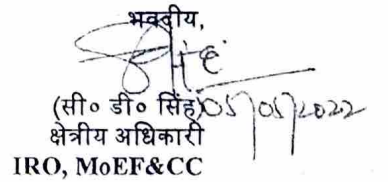 भवदीय,
(सी० डी० सिंह) 05/05/2022
क्षेत्रीय अधिकारी
IRO, MoEF&CC